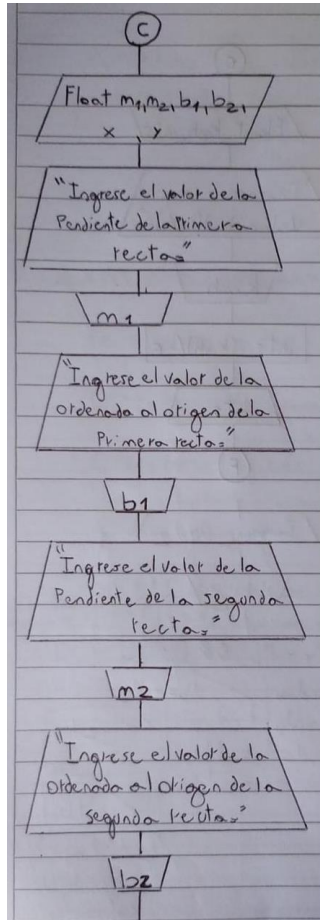 C
Float m1, m2, b1, b2,
x , y
"Ingrese el valor de la
Pendiente de la Primera
recta="
m1
"Ingrese el valor de la
ordenada al origen de la
Primera recta="
b1
"Ingrese el valor de la
Pendiente de la segunda
recta="
m2
"Ingrese el valor de la
ordenada al origen de la
segunda recta="
b2